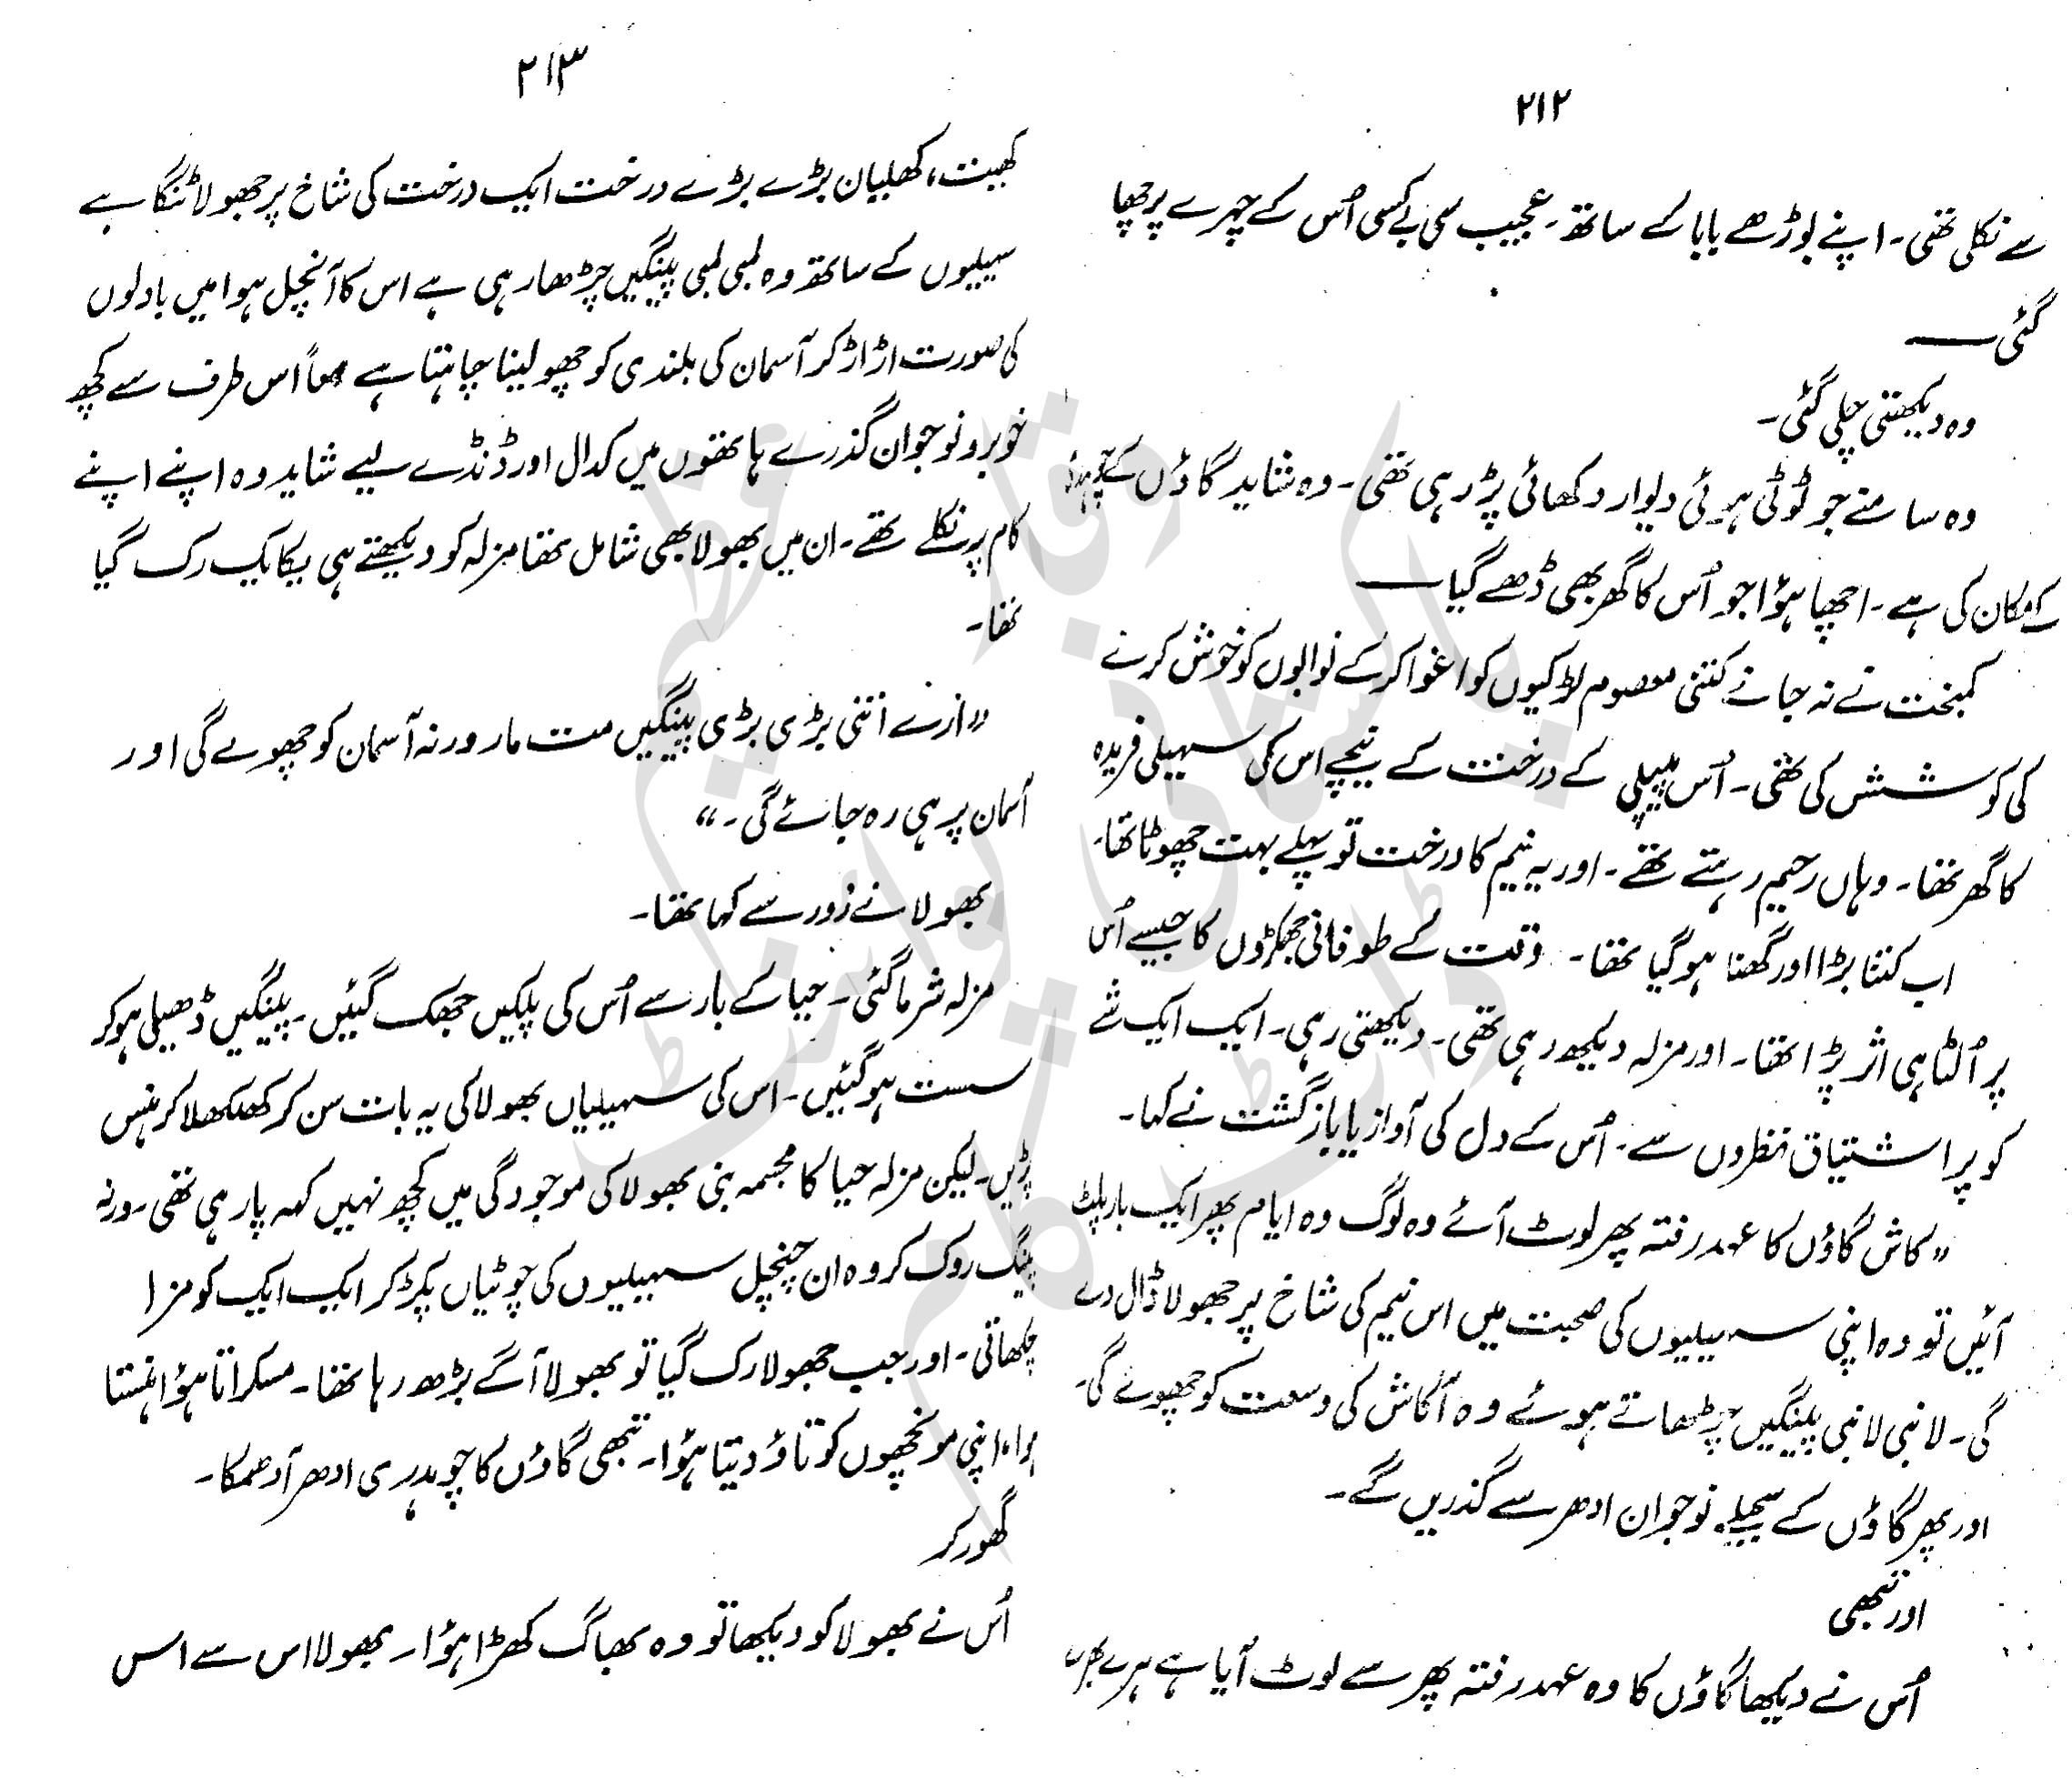 ۲۱۲
سے نکلی تھی۔ اپنے بوڑھے بابا کے ساتھ۔ عجیب سی بے کسی اُس کے چہرے پر چھا
گئی ——
وہ دیکھتی چلی گئی۔
وہ سامنے جو ٹوٹی ہوئی دیوار دکھائی پڑ رہی تھی۔ وہ شاید گاؤں کے
کے مکان کی ہے۔ اچھا ہؤا جو اُس کا گھر بھی ڈھے گیا ——
کمبخت نے نہ جانے کتنی معصوم لڑکیوں کو اغوا کر کے نوابوں کو خوش کرنے
کی کوشش کی تھی۔ اُس پیپلی کے درخت کے نیچے اس کی سہیلی فریدہ
کا گھر تھا۔ وہاں رحیم رہتے تھے۔ اور یہ نیم کا درخت تو پہلے بہت چھوٹا تھا۔
اب کتنا بڑا اور گھنا ہو گیا تھا۔ وقت کے طوفانی جھکڑوں کا جیسے اُس
پر اُلٹا ہی اثر پڑا تھا۔ اور مزلہ دیکھ رہی تھی۔ دیکھتی رہی۔ ایک ایک شے
کو پر اشتیاق نظروں سے۔ اُس کے دل کی آواز یا بازگشت نے کہا۔
”کاش گاؤں کا عہد رفتہ پھر لوٹ آئے وہ لوگ وہ ایام پھر ایک بار پلٹ
آئیں تو وہ اپنی سہیلیوں کی صحبت میں اس نیم کی شاخ پر جھولا ڈال دے
گی۔ لانبی لانبی پینگیں چڑھاتے ہوئے وہ آکاش کی وسعت کو چھولے گی۔
اور پھر گاؤں کے سجیلے نوجوان ادھر سے گذریں گے۔
اور تبھی
اُس نے دیکھا گاؤں کا وہ عہد رفتہ پھر سے لوٹ آیا ہے ہرے بھرے
۲۱۳
کھیت، کھلیان بڑے بڑے درخت ایک درخت کی شاخ پر جھولا ٹنگا ہے
سہیلیوں کے ساتھ وہ لمبی لمبی پینگیں چڑھا رہی ہے اس کا آنچل ہوا میں بادلوں
کی صورت اڑ اڑ کر آسمان کی بلندی کو چھو لینا چاہتا ہے اُس طرف سے کچھ
خوبرو نوجوان گذرے ہاتھوں میں کدال اور ڈنڈے لیے شاید وہ اپنے اپنے
کام پر نکلے تھے۔ ان میں بھولا بھی شامل تھا مزلہ کو دیکھتے ہی یکایک رک گیا
تھا۔
”ارے اتنی بڑی بڑی پینگیں مت مار ورنہ آسمان کو چھولے گی اور
آسمان پر ہی رہ جائے گی۔“
بھولا نے زور سے کہا تھا۔
مزلہ شرما گئی۔ حیا کے بار سے اُس کی پلکیں جھک گئیں۔ پینگیں ڈھیلی ہو کر
سست ہو گئیں۔ اس کی سہیلیاں بھولا کی یہ بات سن کر کھلکھلا کر ہنس
پڑیں۔ لیکن مزلہ حیا کا مجسمہ بنی بھولا کی موجودگی میں کچھ نہیں کہہ پا رہی تھی۔ ورنہ
پینگ روک کر وہ ان چنچل سہیلیوں کی چوٹیاں پکڑ کر ایک ایک کو مزا
چکھاتی۔ اور جب جھولا رک گیا تو بھولا آگے بڑھ رہا تھا۔ مسکراتا ہؤا ہنستا
ہوا، اپنی مونچھوں کو تاؤ دیتا ہؤا۔ تبھی گاؤں کا چوہدری ادھر آدھمکا۔
گھور کر
اُس نے بھولا کو دیکھا تو وہ بھاگ کھڑا ہؤا۔ بھولا اس سے اس
پاکستانی پوائنٹ